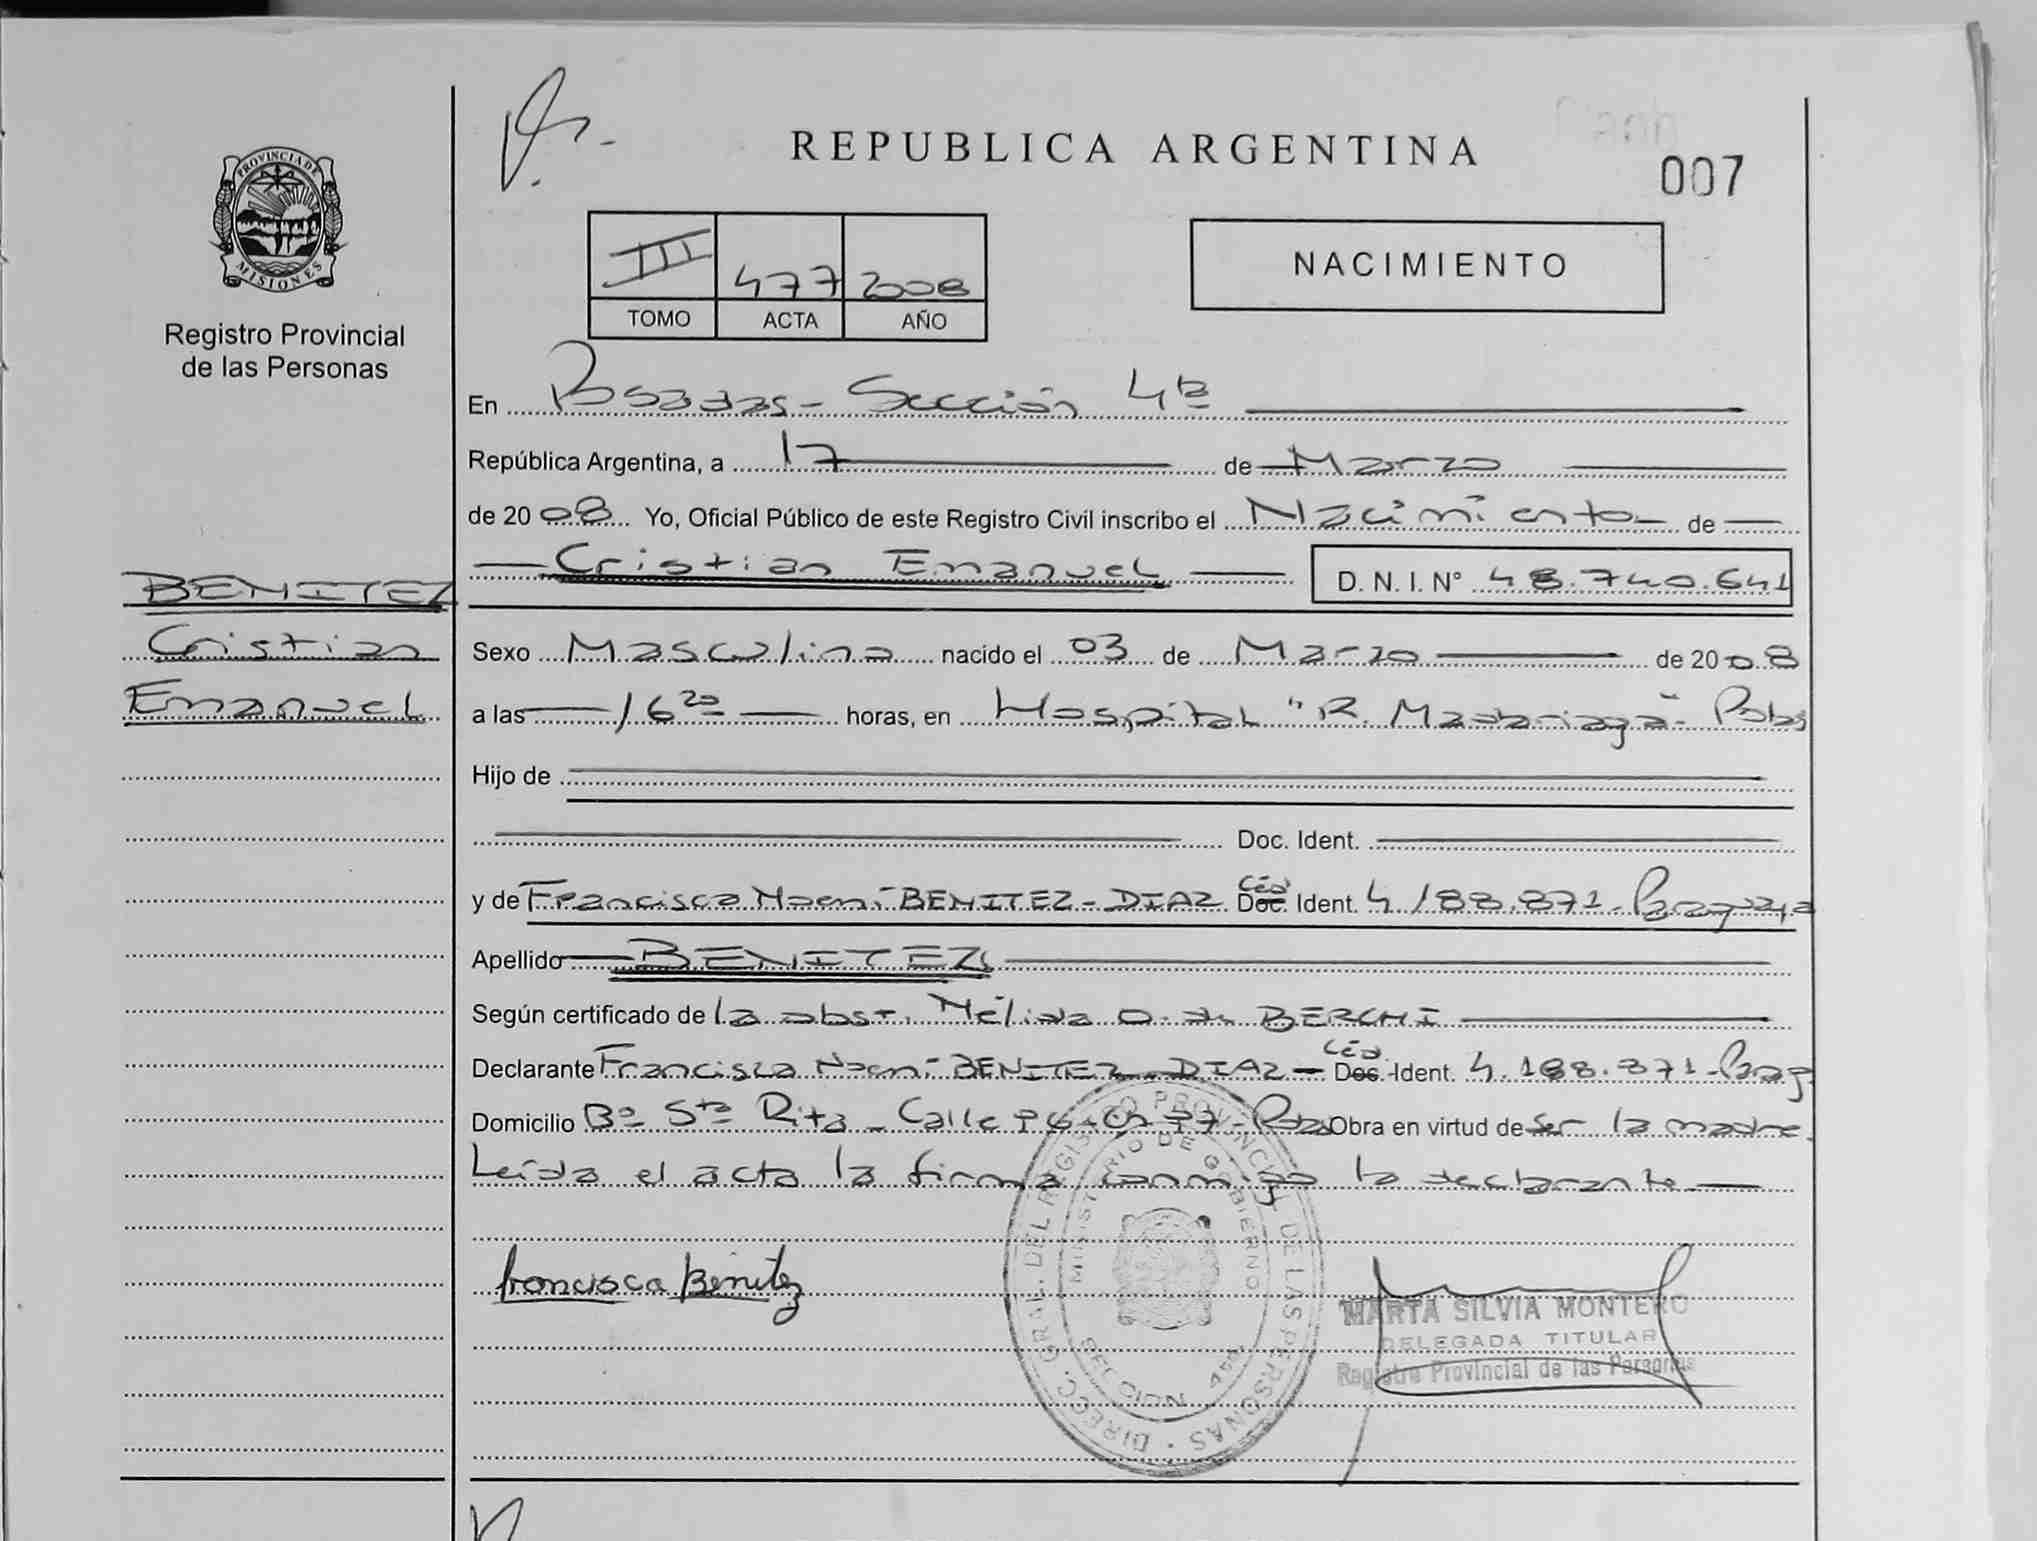 REPUBLICA ARGENTINA
007
PROVINCIA DE
MISIONES
Registro Provincial
de las Personas
III 477 2008
TOMO ACTA AÑO
NACIMIENTO
En Posadas - Sección 4ta
República Argentina, a 17 de Marzo
de 2008 Yo, Oficial Público de este Registro Civil inscribo el Nacimiento de
Cristian Emanuel D. N. I. N° 48.740.641
BENITEZ
Cristian
Emanuel
Sexo Masculino nacido el 03 de Marzo de 2008
a las 16 20 horas, en Hospital "R. Madariaga" - Pdas
Hijo de
Doc. Ident.
y de Francisca Noemí BENITEZ - DIAZ Céd Doc. Ident. 4.188.871 - Paraguaya
Apellido BENITEZ
Según certificado de la obst. Nélida O. de BERCHI
Declarante Francisca Noemí BENITEZ DIAZ - Céd. Doc. Ident. 4.188.871 - Parag
Domicilio Bº Sta Rita - Calle Pdas Obra en virtud de ser la madre.
Leída el acta la firma conmigo la declarante
Francisca Benitez
DIRECC. GRAL. DEL REGISTRO PROVINCIAL DE LAS PERSONAS
MINISTERIO DE GOBIERNO
SECCION 4ta
MARTA SILVIA MONTERO
DELEGADA TITULAR
Registro Provincial de las Personas